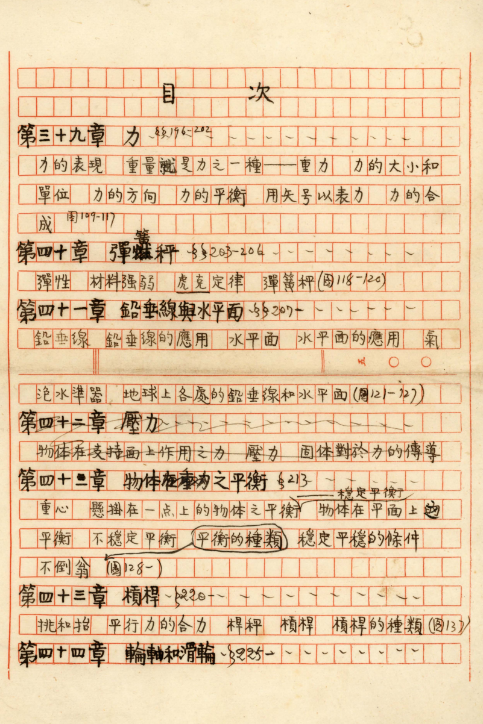 目 次
第三十九章 力 §§196-202
力的表現 重量是力之一種——重力 力的大小和
單位 力的方向 力的平衡 用矢号以表力 力的合
成 圖109-117
第四十章 彈簧秤 §§203-206
彈性 材料强弱 虎克定律 彈簧秤(圖118-120)
第四十一章 鉛垂線與水平面 §§207-
鉛垂線 鉛垂線的應用 水平面 水平面的應用 氣
泡水準器 地球上各處的鉛垂線和水平面(圖121-127)
第四十二章 壓力
物体在支持面上作用之力 壓力 固体對於力的傳導
第四十二章 物体在重力之平衡 §213
穩定平衡
重心 懸掛在一点上的物体之平衡 物体在平面上之
平衡 不穩定平衡 平衡的種類 穩定平穩的條件
不倒翁 (圖128-)
第四十三章 槓桿 §220-
挑和抬 平行力的合力 桿秤 槓桿 槓桿的種類
第四十四章 輪軸和滑輪 §225-